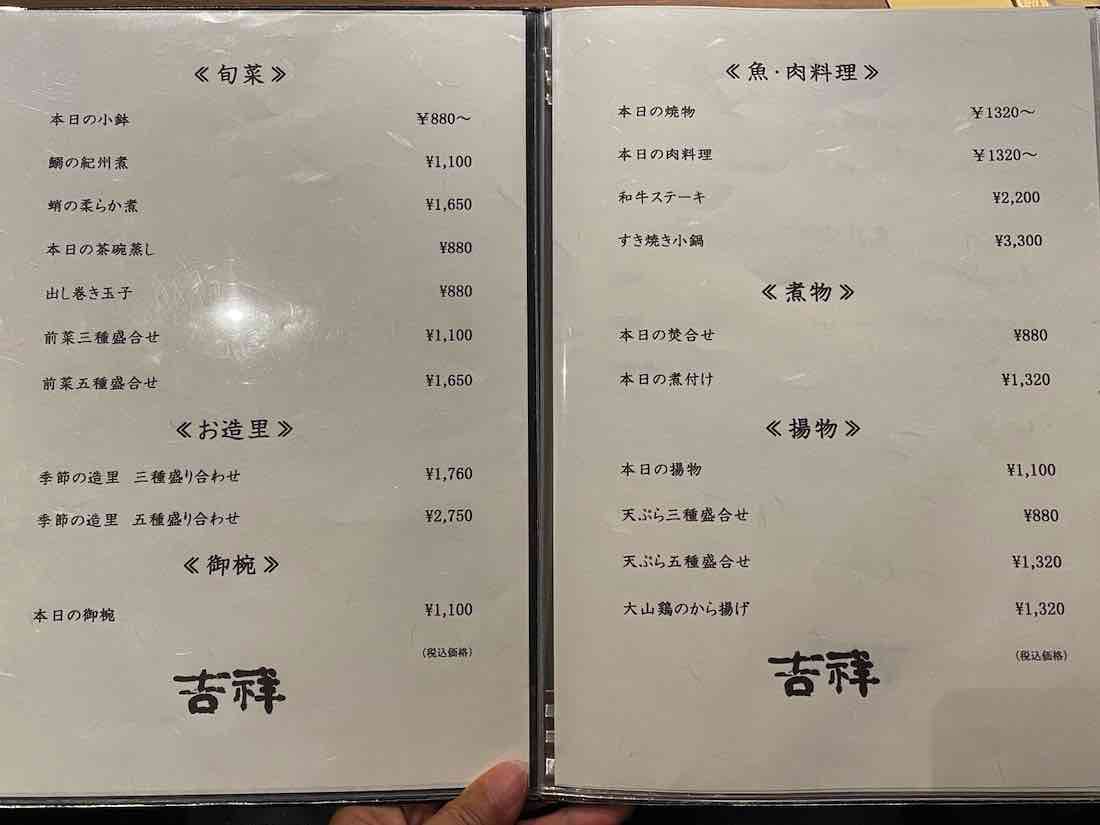 ≪旬菜≫
本日の小鉢 ¥880〜
鰯の紀州煮 ¥1,100
蛸の柔らか煮 ¥1,650
本日の茶碗蒸し ¥880
出し巻き玉子 ¥880
前菜三種盛合せ ¥1,100
前菜五種盛合せ ¥1,650
≪お造里≫
季節の造里 三種盛り合わせ ¥1,760
季節の造里 五種盛り合わせ ¥2,750
≪御椀≫
本日の御椀 ¥1,100
(税込価格)
吉祥
≪魚・肉料理≫
本日の焼物 ¥1320〜
本日の肉料理 ¥1320〜
和牛ステーキ ¥2,200
すき焼き小鍋 ¥3,300
≪煮物≫
本日の焚合せ ¥880
本日の煮付け ¥1,320
≪揚物≫
本日の揚物 ¥1,100
天ぷら三種盛合せ ¥880
天ぷら五種盛合せ ¥1,320
大山鶏のから揚げ ¥1,320
(税込価格)
吉祥